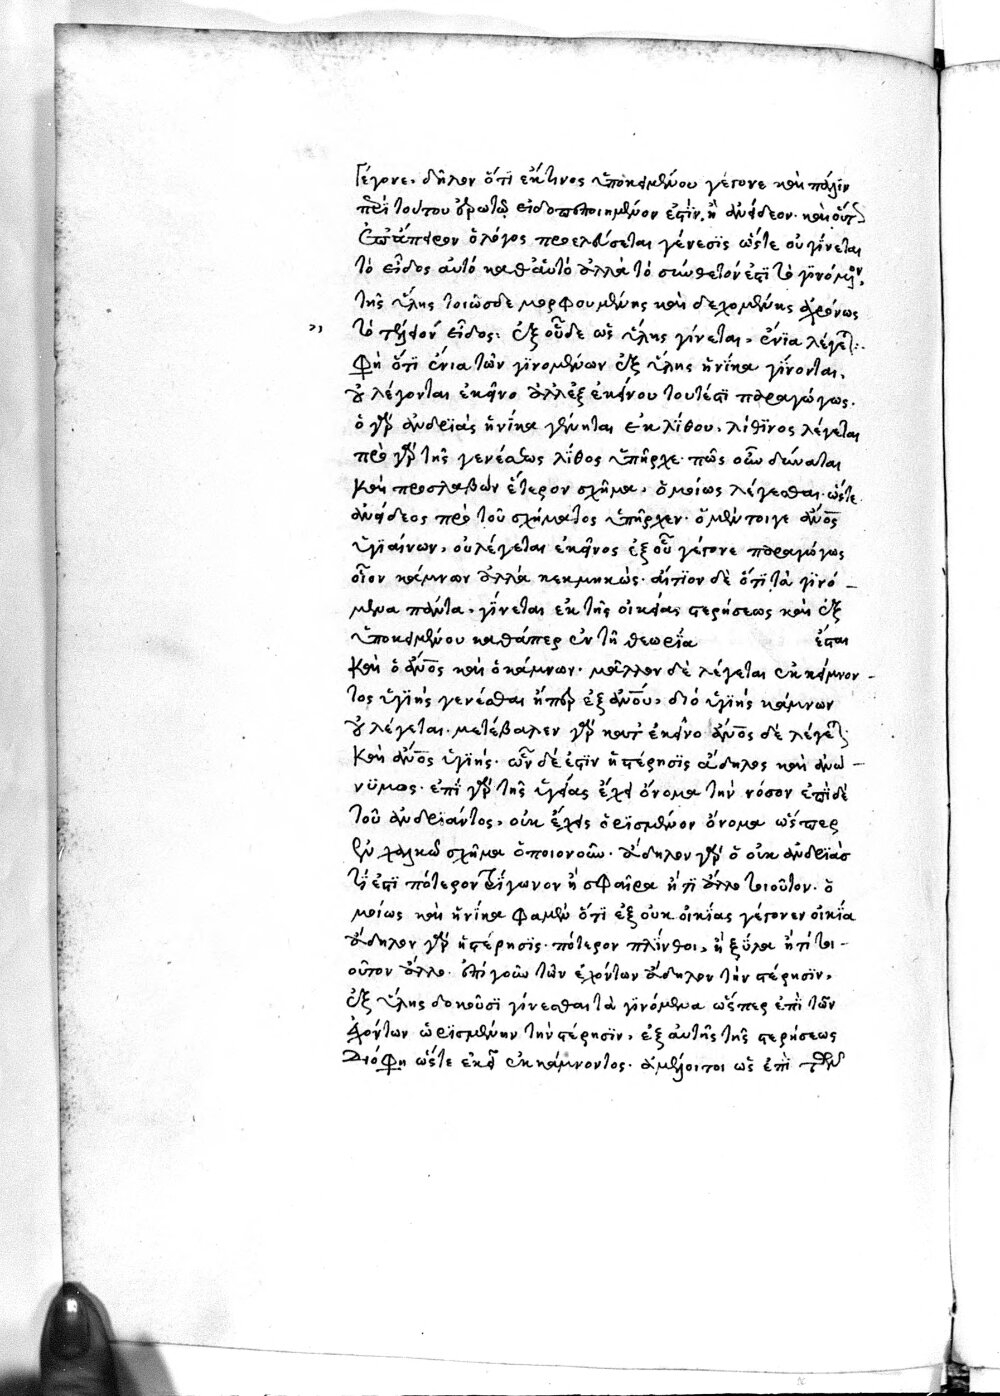 Γέγονε. δῆλον ὅτι ἐκ τινος ὑποκειμένου γέγονε καὶ πάλιν
περὶ τούτου ἐρωτῶ εἰδοπεποιημένον ἐστὶν, ἢ ἀνείδεον. καὶ οὕτως
ἐπ' ἄπειρον ὁ λόγος προελεύσεται γένεσις ὥστε οὐ γίνεται
τὸ εἶδος αὐτὸ καθ' αὑτὸ ἀλλὰ τὸ σύνθετόν ἐστι τὸ γινόμενον,
τῆς ὕλης τοιῶσδε μορφουμένης καὶ δεχομένης ἀχρόνως
τὸ τοιόνδε εἶδος: ἐξ οὗ δὲ ὡς ὕλης γίνεται, ἔνια λέγεται:
Φησὶ ὅτι ἔνια τῶν γινομένων ἐξ ὕλης ἡνίκα γίνονται,
οὐ λέγονται ἐκεῖνο ἀλλ' ἐξ ἐκείνου τουτέστι παραγώγως.
ὁ γὰρ ἀνδριὰς ἡνίκα γένηται ἐκ λίθου, λίθινος λέγεται
πρὸ γὰρ τῆς γενέσεως λίθος ὑπῆρχε. πῶς οὖν δύναται
καὶ προσλαβὼν ἕτερον σχῆμα, ὁμοίως λέγεσθαι. ὥστε
ἀνείδεος πρὸ τοῦ σχήματος ὑπῆρχεν. ὁ μέντοιγε ἄνος
ὑγιαίνων, οὐ λέγεται ἐκεῖνος ἐξ οὗ γέγονε παραγώγως
οἷον κάμνων ἀλλὰ κεκμηκώς. αἴτιον δὲ ὅτι τὰ γινό-
μενα πάντα, γίνεται ἐκ τῆς οἰκείας στερήσεως καὶ ἐξ
ὑποκειμένου καθάπερ ἐν τῇ θεωρίᾳ ἔσται
καὶ ὁ ἄνος καὶ ὁ κάμνων. μᾶλλον δὲ λέγεται ἐκ κάμνον-
τος ὑγιὴς γενέσθαι ἤπερ ἐξ ἀνου, διὸ ὑγιὴς κάμνων
οὐ λέγεται. μετέβαλεν γὰρ κατ' ἐκεῖνο ἄνος δὲ λέγεται
καὶ ἄνος ὑγιής. ὧν δέ ἐστιν ἡ στέρησις ἄδηλος καὶ ἀνώ-
νυμος. ἐπὶ γὰρ τῆς ὑγείας ἔχει ὄνομα τὴν νόσον ἐπὶ δὲ
τοῦ ἀνδριάντος, οὐκ ἔχεις ὁρισμένον ὄνομα ὥσπερ
ἐν χαλκῷ σχῆμα ὁποιονοῦν. ἄδηλον γὰρ ὁ οὐκ ἀνδριάς
τί ἐστι πότερον τρίγωνον ἢ σφαῖρα ἤ τι ἄλλο τοιοῦτον. ὁ
μοίως καὶ ἡνίκα φαμὲν ὅτι ἐξ οὐκ οἰκίας γέγονεν οἰκία
ἄδηλον γὰρ ἡ στέρησις. πότερον πλίνθοι, ἢ ξύλα ἤ τι τοι-
οῦτον ἄλλο. ἐπὶ γοῦν τῶν ἐχόντων ἄδηλον τὴν στέρησιν,
ἐξ ὕλης δοκοῦσι γίνεσθαι τὰ γινόμενα ὥσπερ ἐπὶ τῶν
ἐχόντων ὡρισμένην τὴν στέρησιν, ἐξ αὐτῆς τῆς στερήσεως
Διό φησι ὥστε ἐκεῖ ἐκ κάμνοντος. ἀμέλοιτοι ὡς ἐπὶ τῶν